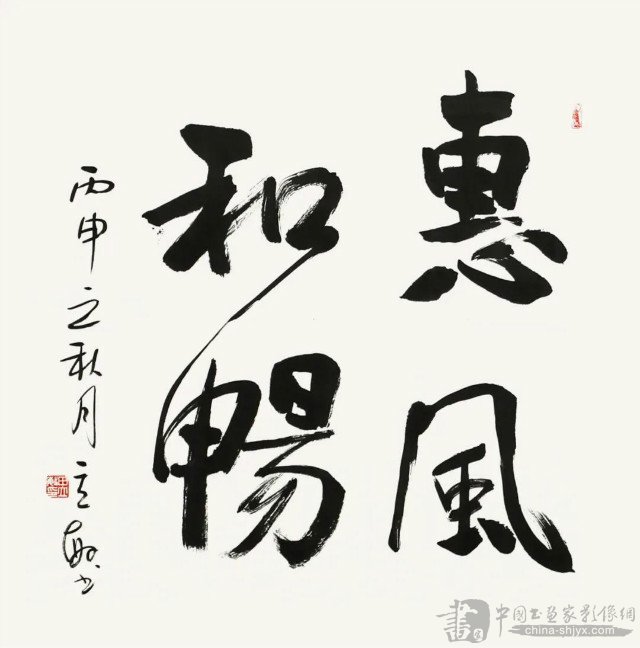 惠風
和暢
丙申之秋月立
書
中国书画家影像網
china-shjyx.com